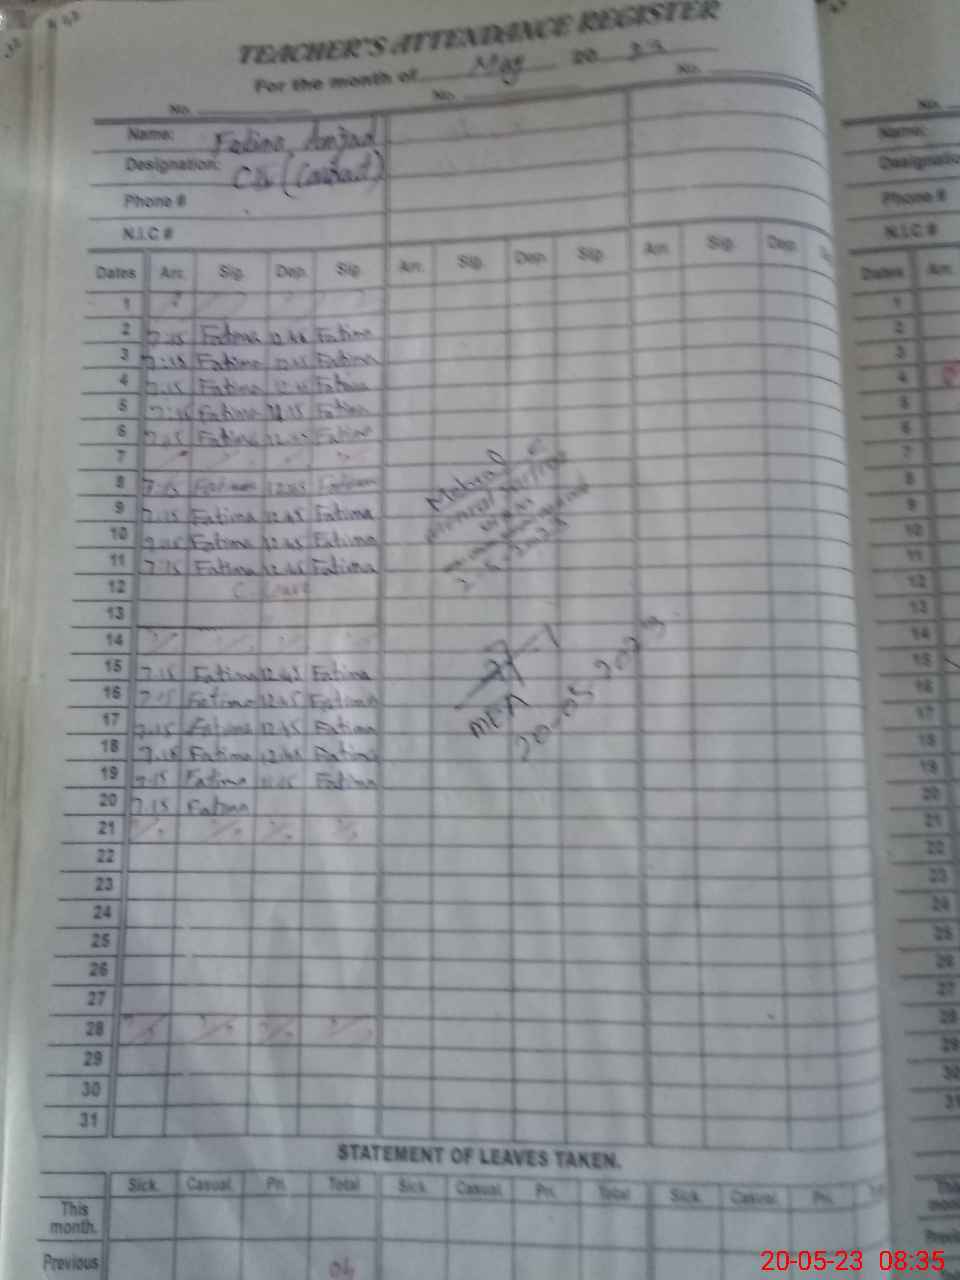 TEACHER'S ATTENDANCE REGISTER
For the month of May 20 23
No. No. No.
Name: Fatima Amjad
Designation:
Phone #
N.I.C #
Dates Arr. Sig. Dep. Sig. Arr. Sig. Dep. Sig. Arr. Sig. Dep.
1
2 7:15 Fatima 12.45 Fatima
3 7:15 Fatima 12.45 Fatima
4 7.15 Fatima 12.45 Fatima
5 7:15 Fatima 12.15 Fatima
6 7.15 Fatima Fatima
7
8 7:15 Fatima 12.45 Fatima
9 7.15 Fatima 12.45 Fatima
10 7.15 Fatima 12.45 Fatima
11 7:15 Fatima 12.45 Fatima
12 C. Leave
13
14
15 7.15 Fatima 12.45 Fatima
16 7.15 Fatima 12.45 Fatima
17 7.15 Fatima 12.45 Fatima
18 7.15 Fatima 12.45 Fatima
19 7.15 Fatima Fatima
20 7.15 Fatima
21
22
23
24
25
26
27
28
29
30
31
2-5-2023
MEA
20-05-2023
STATEMENT OF LEAVES TAKEN.
Sick. Casual. Pri. Total Sick. Casual. Pri. Total Sick. Casual. Pri.
This month.
Previous 04
No.
Name:
Designatio
Phone #
N.I.C #
Dates Arr.
1
2
3
4
5
6
7
8
9
10
11
12
13
14
15
16
17
18
19
20
21
22
23
24
25
26
27
28
29
30
31
20-05-23 08:35